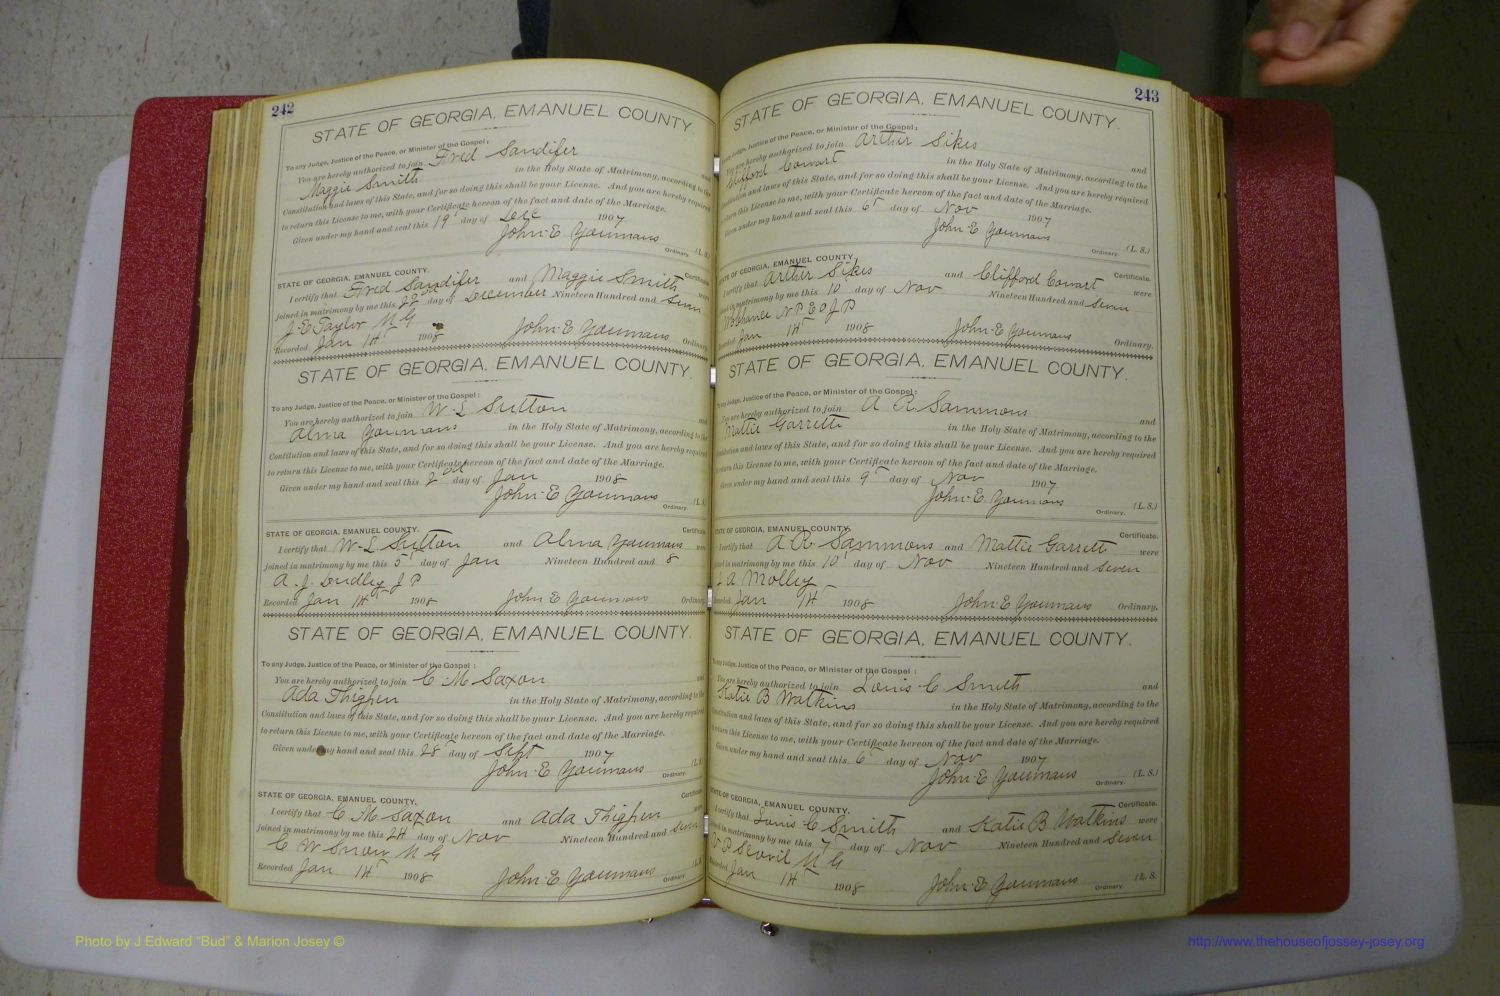 242
STATE OF GEORGIA, EMANUEL COUNTY.
To any Judge, Justice of the Peace, or Minister of the Gospel:
You are hereby authorized to join Fred Sandifer and
Maggie Smith in the Holy State of Matrimony, according to the
Constitution and laws of this State, and for so doing this shall be your License. And you are hereby required
to return this License to me, with your Certificate hereon of the fact and date of the Marriage.
Given under my hand and seal this 19" day of Dec 1907
John E Youmans (L. S.)
Ordinary.
STATE OF GEORGIA, EMANUEL COUNTY. Certificate
I certify that Fred Sandifer and Maggie Smith were
joined in matrimony by me this 22nd day of December Nineteen Hundred and Seven
J. E Taylor M G
Recorded Jan 14" 1908 John E Youmans Ordinary
STATE OF GEORGIA, EMANUEL COUNTY.
To any Judge, Justice of the Peace, or Minister of the Gospel:
You are hereby authorized to join W. L Sutton and
Alma Youmans in the Holy State of Matrimony, according to the
Constitution and laws of this State, and for so doing this shall be your License. And you are hereby required
to return this License to me, with your Certificate hereon of the fact and date of the Marriage.
Given under my hand and seal this 2nd day of Jan 1908
John E Youmans (L. S.)
Ordinary.
STATE OF GEORGIA, EMANUEL COUNTY. Certificate
I certify that W. L Sutton and Alma Youmans were
joined in matrimony by me this 5" day of Jan Nineteen Hundred and 8
A. J. Dudley J P
Recorded Jan 14" 1908 John E Youmans Ordinary
STATE OF GEORGIA, EMANUEL COUNTY.
To any Judge, Justice of the Peace, or Minister of the Gospel:
You are hereby authorized to join C. M Saxon and
Ada Thigpen in the Holy State of Matrimony, according to the
Constitution and laws of this State, and for so doing this shall be your License. And you are hereby required
to return this License to me, with your Certificate hereon of the fact and date of the Marriage.
Given under my hand and seal this 28" day of Sept 1907
John E Youmans (L. S
Ordinary.
STATE OF GEORGIA, EMANUEL COUNTY. Certificate
I certify that C M Saxon and Ada Thigpen were
joined in matrimony by me this 24 day of Nov Nineteen Hundred and Seven
C W Snow M G
Recorded Jan 14" 1908 John E Youmans
Ordinary
243
STATE OF GEORGIA, EMANUEL COUNTY.
any Judge, Justice of the Peace, or Minister of the Gospel:
You are hereby authorized to join Arther Sikes and
Clifford Cowart in the Holy State of Matrimony, according to the
and laws of this State, and for so doing this shall be your License. And you are hereby required
return this License to me, with your Certificate hereon of the fact and date of the Marriage.
Given under my hand and seal this 6" day of Nov 1907
John E Youmans (L. S.)
Ordinary.
STATE OF GEORGIA, EMANUEL COUNTY. Certificate.
I certify that Arther Sikes and Clifford Cowart were
joined in matrimony by me this 10 day of Nov Nineteen Hundred and Seven
N P E O J P
Jan 14" 1908 John E Youmans Ordinary.
STATE OF GEORGIA, EMANUEL COUNTY.
To any Judge, Justice of the Peace, or Minister of the Gospel:
You are hereby authorized to join A R Sammons and
Mattie Garrett in the Holy State of Matrimony, according to the
Constitution and laws of this State, and for so doing this shall be your License. And you are hereby required
return this License to me, with your Certificate hereon of the fact and date of the Marriage.
Given under my hand and seal this 9" day of Nov 1907
John E Youmans (L. S.)
Ordinary.
STATE OF GEORGIA, EMANUEL COUNTY. Certificate.
I certify that A. R. Sammons and Mattie Garrett were
joined in matrimony by me this 10" day of Nov Nineteen Hundred and Seven
A Molley
Jan 14" 1908 John E Youmans Ordinary.
STATE OF GEORGIA, EMANUEL COUNTY.
To any Judge, Justice of the Peace, or Minister of the Gospel:
You are hereby authorized to join Louis C Smith and
Katie B Watkins in the Holy State of Matrimony, according to the
Constitution and laws of this State, and for so doing this shall be your License. And you are hereby required
return this License to me, with your Certificate hereon of the fact and date of the Marriage.
Given under my hand and seal this 6" day of Nov 1907
John E Youmans (L. S.)
Ordinary.
STATE OF GEORGIA, EMANUEL COUNTY. Certificate.
I certify that Louis C Smith and Katie B Watkins were
joined in matrimony by me this 7" day of Nov Nineteen Hundred and Seven
P M G
Jan 14" 1908 John E Youmans (L. S.
Ordinary
Photo by J Edward "Bud" & Marion Josey ©
http://www.thehouseofjossey-josey.org